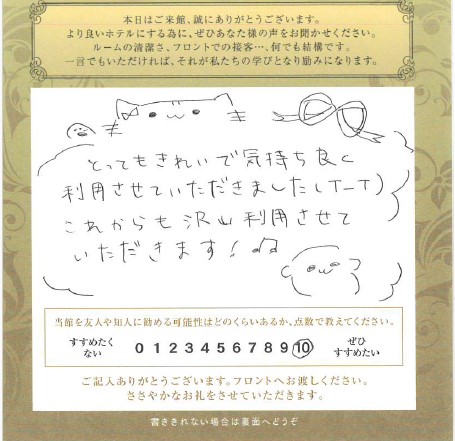 本日はご来館、誠にありがとうございます。
より良いホテルにする為に、ぜひあなた様の声をお聞かせください。
ルームの清潔さ、フロントでの接客…、何でも結構です。
一言でもいただければ、それが私たちの学びとなり励みになります。
とってもきれいで気持ち良く
利用させていただきました(T-T)
これからも沢山利用させて
いただきます!♫
当館を友人や知人に勧める可能性はどのくらいあるか、点数で教えてください。
すすめたくない 0 1 2 3 4 5 6 7 8 9 10 ぜひすすめたい
ご記入ありがとうございます。フロントへお渡しください。
ささやかなお礼をさせていただきます。
書ききれない場合は裏面へどうぞ